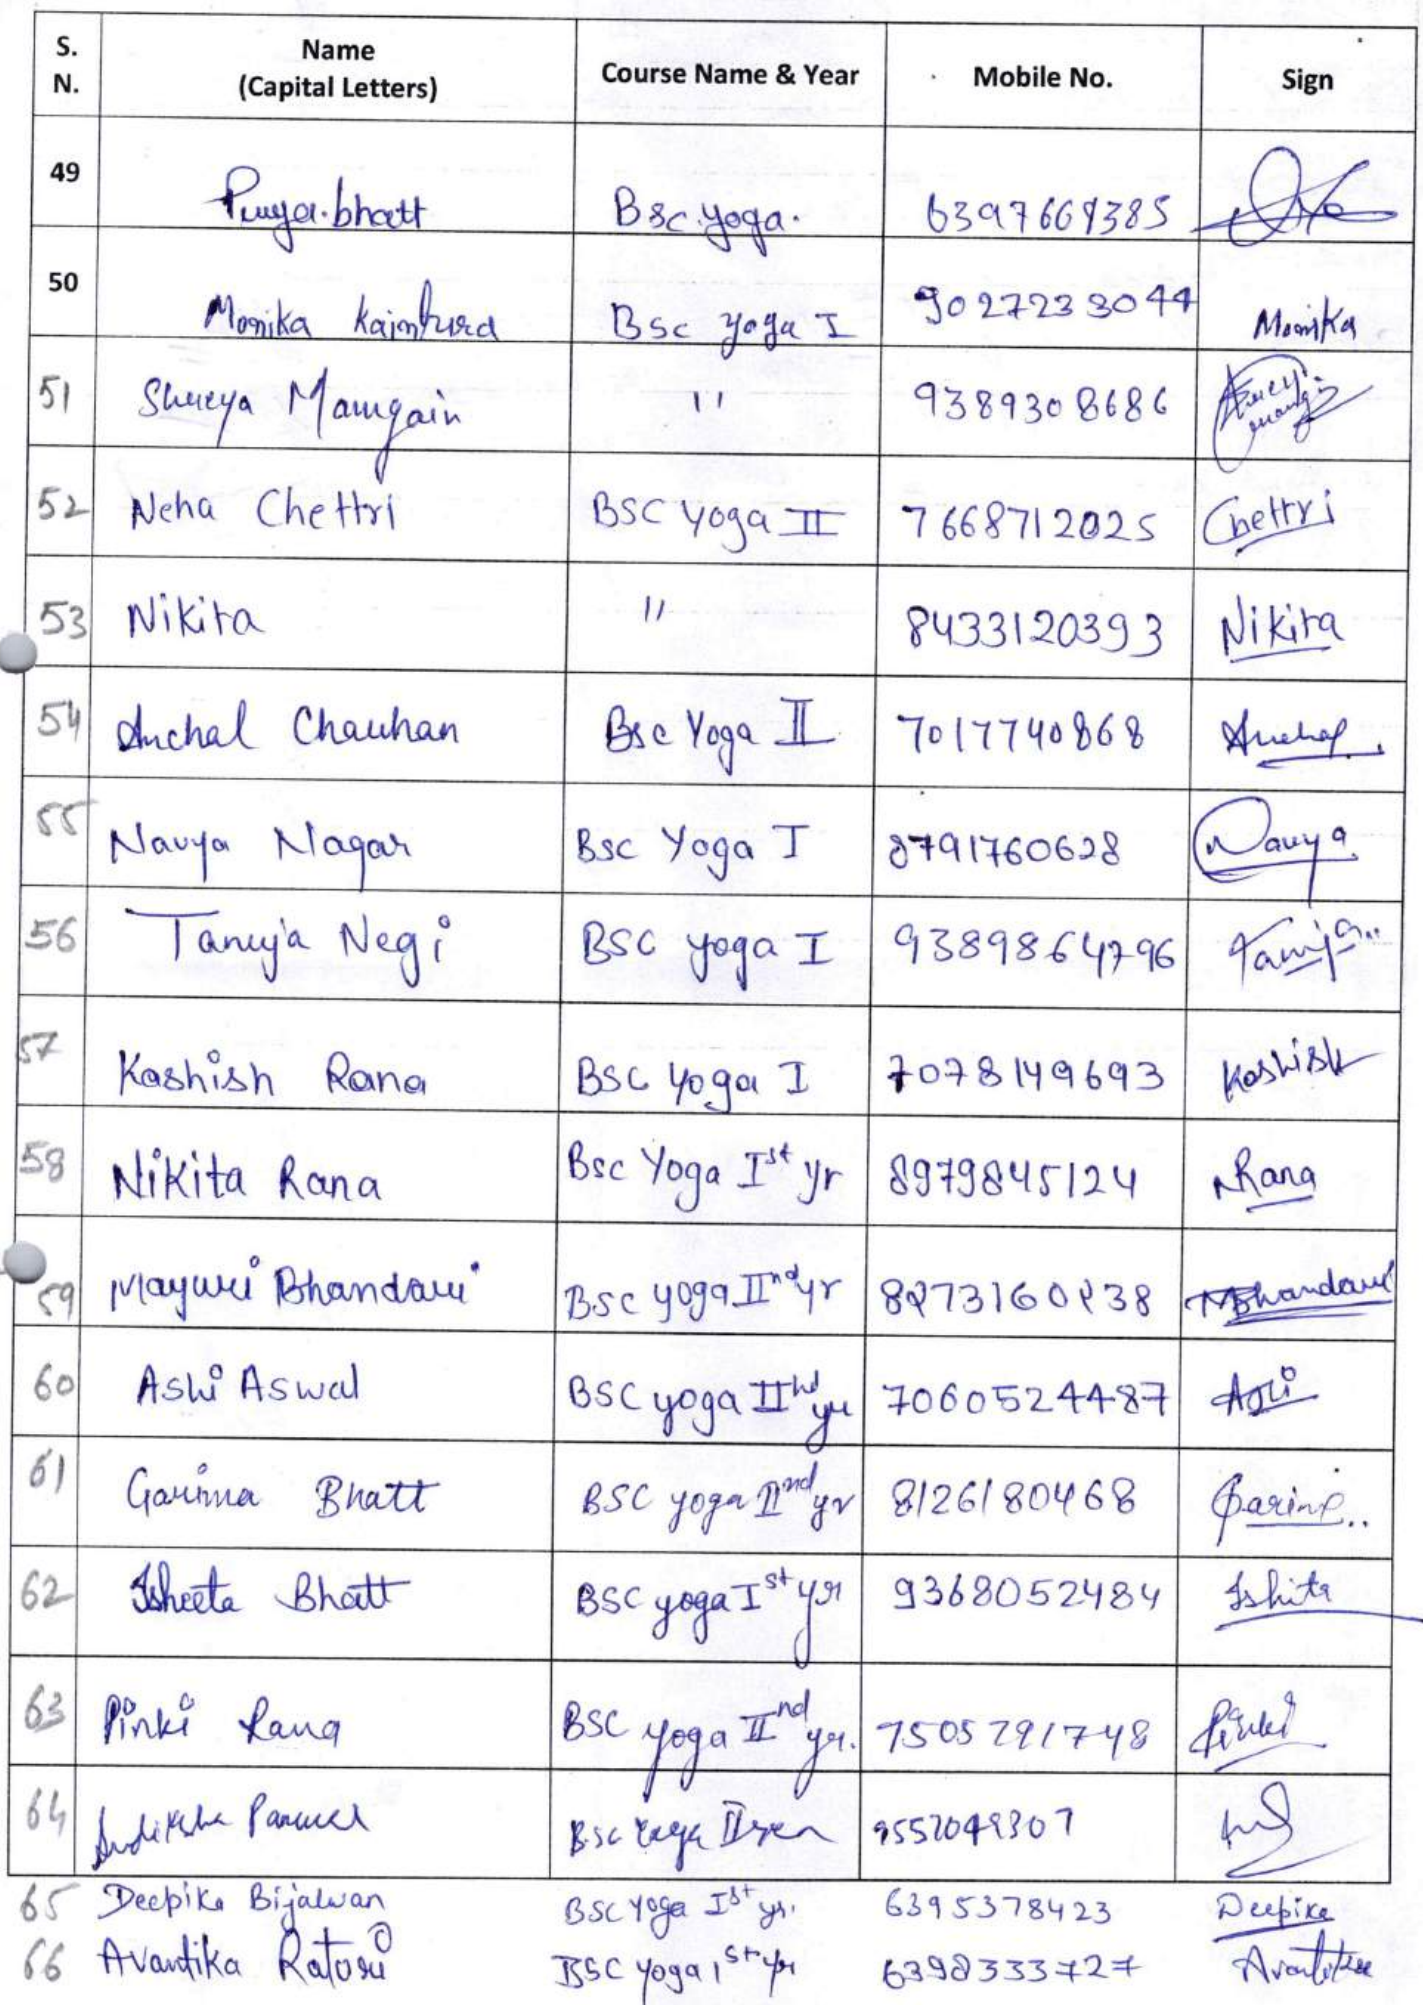 S. N. Name (Capital Letters) Course Name & Year Mobile No. Sign
49 bhatt Bsc.yoga.
50 Monika Bsc yoga I 9027233044 Monika
51 Shreya Mamgain " 9389308686
52 Neha Chettri BSC Yoga II 7668712025 Chettri
53 Nikita " 8433120393 Nikita
54 Anchal Chauhan Bsc Yoga II 7017740868 Anchal
55 Navya Nagar Bsc Yoga I 8791760628 Navya
56 Tanuja Negi BSC yoga I 9389864796 Tanuja..
57 Kashish Rana BSC Yoga I 7078149693 Kashish
58 Nikita Rana Bsc Yoga Ist yr 8979845124 NRana
59 Mayuri Bhandari BSC yoga IInd yr MBhandari
60 Ashi Aswal BSC yoga IInd yr 7060524487 Ashi
61 Garima Bhatt BSC yoga IInd yr 8126180468 Garima..
62 Isheeta Bhatt BSC yoga Ist yr 9368052484 Ishita
63 Pinki Rana BSC yoga IInd yr. 7505791748 Pinki
64 Bsc Yoga II
65 Deepika Bijalwan BSC Yoga Ist yr. 6395378423 Deepika
66 Avantika Raturi BSC yoga 1st yr 6398333727 Avantika